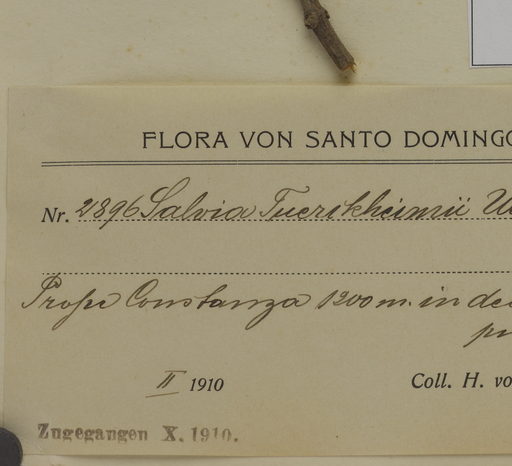 FLORA VON SANTO DOMINGO
Nr. 2896 Salvia Tuerckheimii
Prope Constanza 1200 m. in
II 1910
Coll. H. vo
Zugegangen X. 1910.